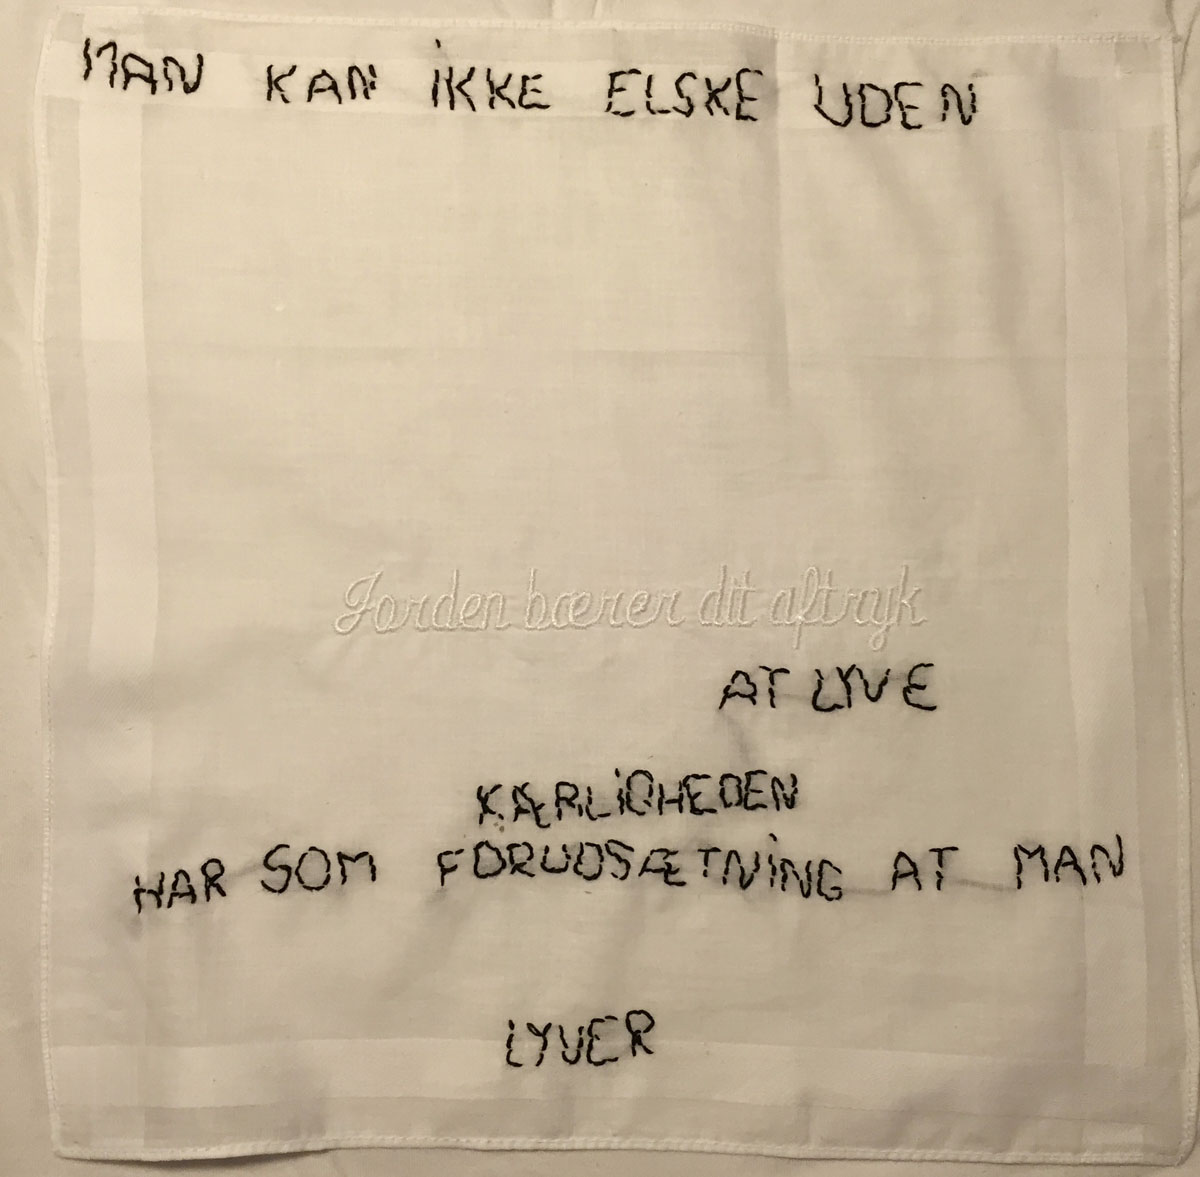 MAN KAN iKKE ELSKE UDEN
Jorden bærer dit aftryk
AT LYVE
KÆRLiGHEDEN
HAR SOM FORUDSÆTNiNG AT MAN
LYVER